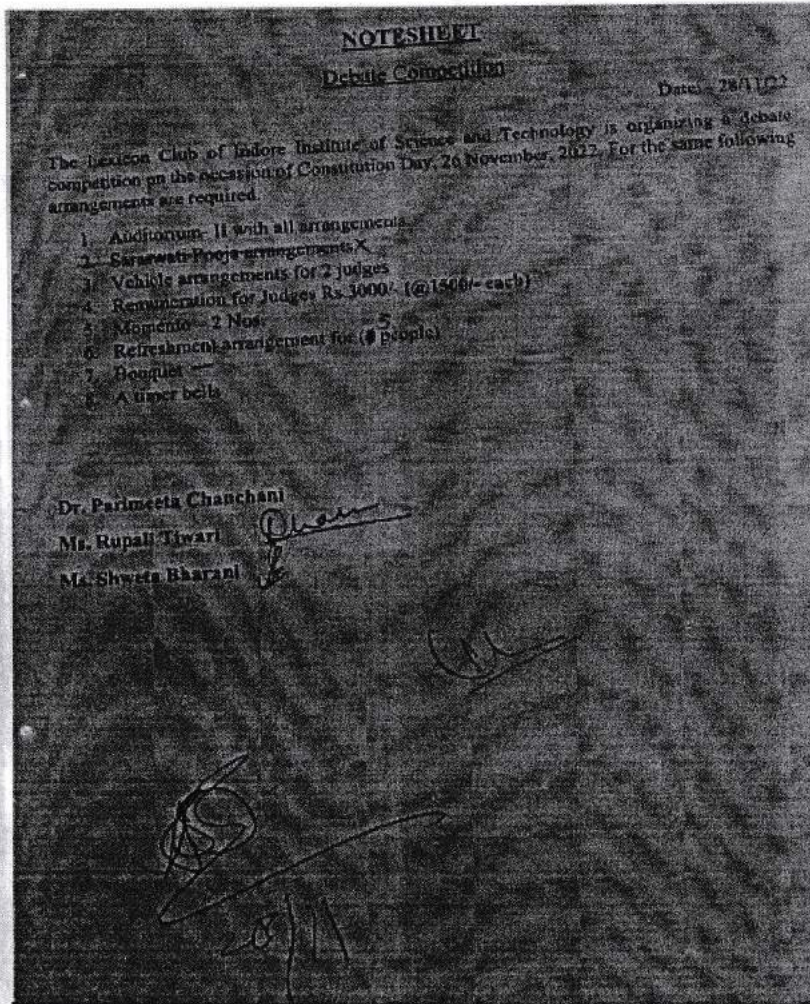 NOTESHEET
Debate Competition
Date: - 28/11/22
The Lexicon Club of Indore Institute of Science and Technology is organizing a debate
competition on the occasion of Constitution Day, 26 November, 2022. For the same following
arrangements are required.
1. Auditorium- II with all arrangements
2. Saraswati Pooja arrangements X
3. Vehicle arrangements for 2 judges
4. Remuneration for Judges Rs.3000/- (@1500/- each)
5. Momento – 2 Nos.
6. Refreshment arrangement for (5 people)
7. Bouquet
8. A timer bells
Dr. Parimeeta Chanchani
Ms. Rupali Tiwari
Ms. Shweta Bharani